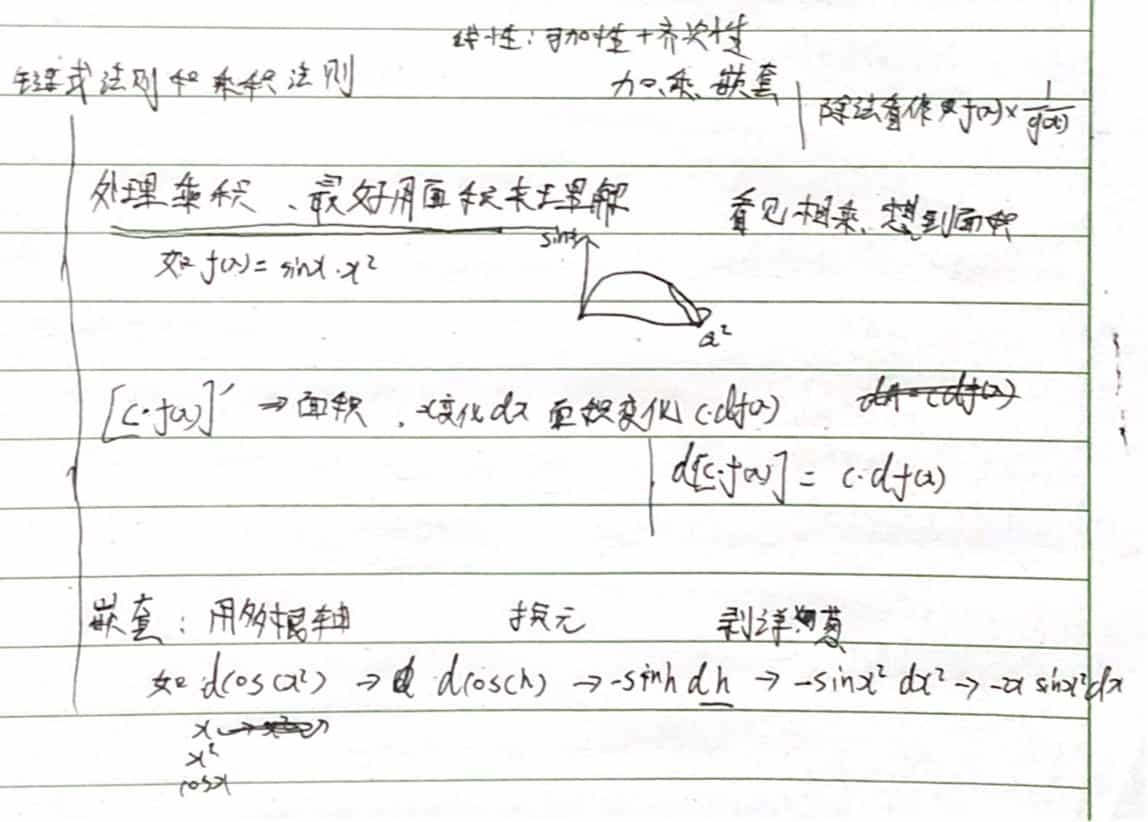 线性：可加性+齐次性
链式法则和乘积法则
加、乘、嵌套
除法看作 f(x)×1/g(x)
处理乘积、最好用面积来理解
看见相乘、想到面积
如 f(x)=sinx·x²
sinx
x²
[c·f(x)]' ⇒ 面积、x变化dx 面积变化 c·df(x)
d[c·f(x)] = c·df(x)
嵌套：用多根轴 换元 剥洋葱
如 dcos(x²) → dcos(h) → -sinh dh → -sinx² dx² → -2x sinx² dx
x
x²
cosx